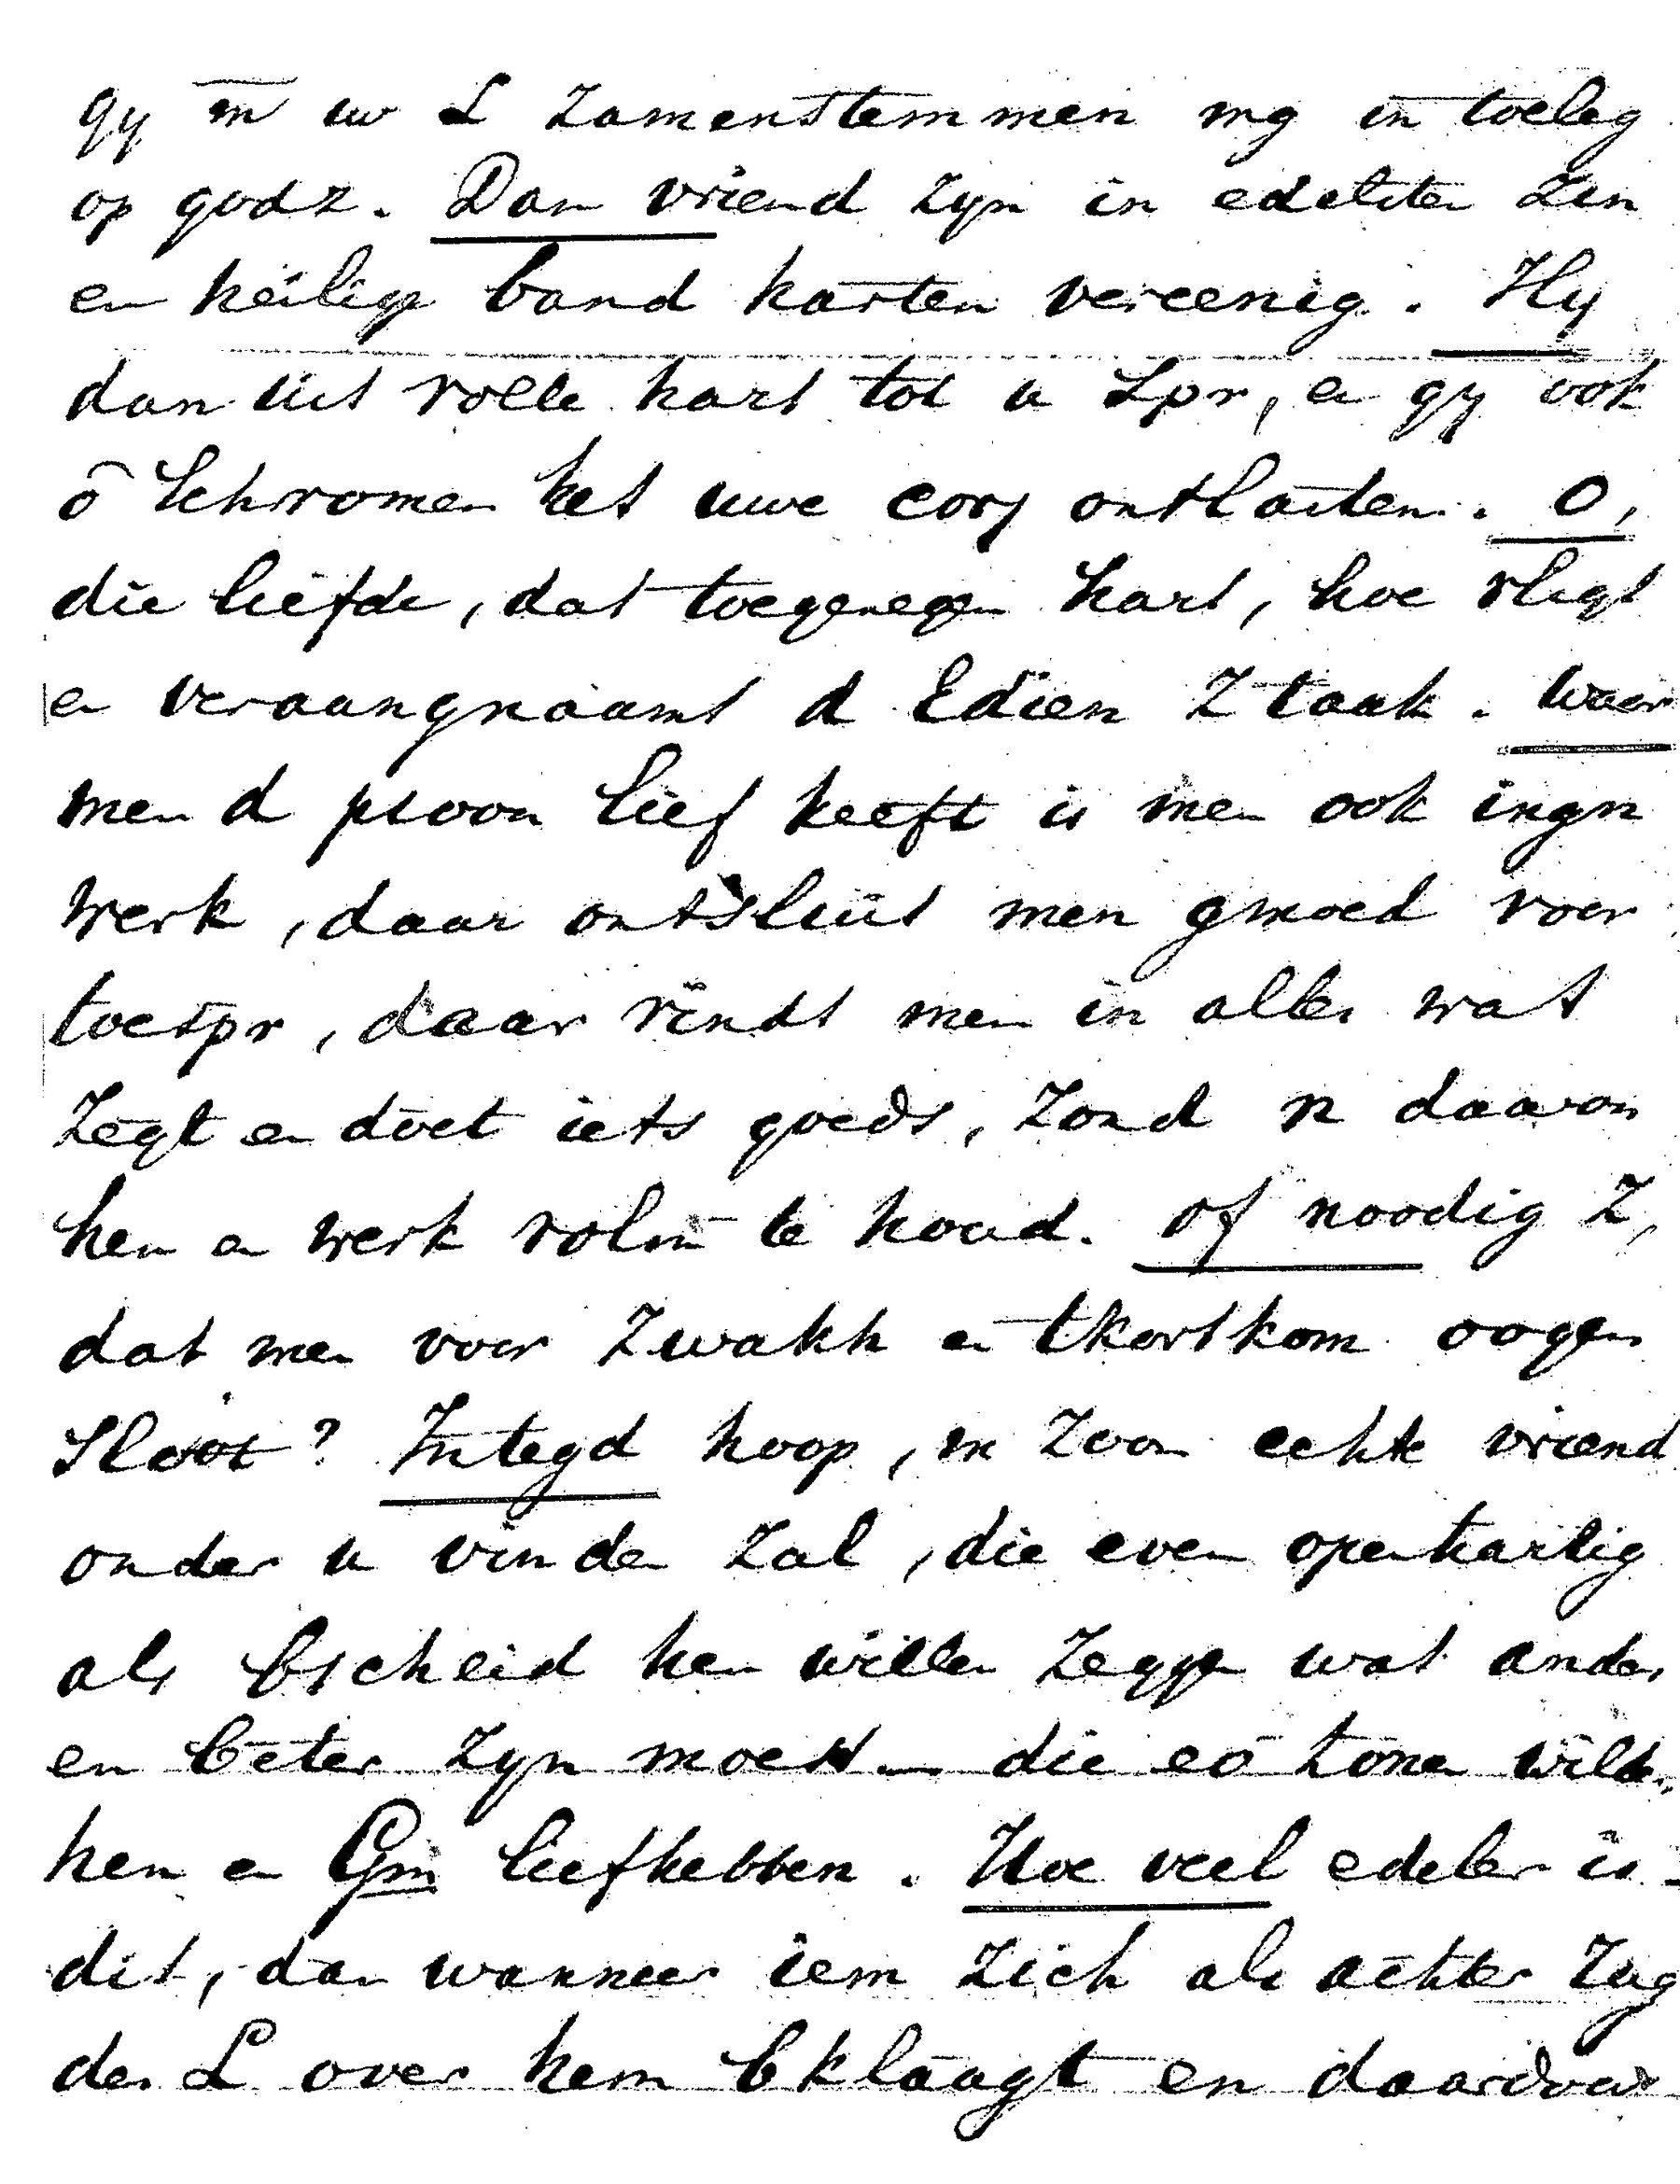 gy m̄ uw L zamenstemmen mg in toeleg
op godz. Dan vriend zyn in edelste zin
en heilige band harten vereenig. Hy
dan uit volle hart tot u spr, en gy ook
ō schromen het uwe corj ontlasten. O,
die liefde, dat toegenegen hart, hoe vligt
en veraangnaamt d Edien Z taak. Waar
men d psoon lief heeft is men ook ingn
werk, daar ontsluit men gmoed voor
toespr, daar vindt men in alles wat
zegt en doet iets goeds, zond n daarom
hen en werk volm te houd. Of noodig Z,
dat men voor zwakh en tkortkom oogen
sloot? Integd hoop, m zoon echte vriend
onder u vinden zal, die even openhartig
als bscheid hen willen zeggen wat anders
en beter zyn moest en die eō tonen wilden
hen en Gm liefhebben. Hoe veel edeler is
dit, dan wanneer iem zich als achter zug
der L over hem bklaagt en daardoor